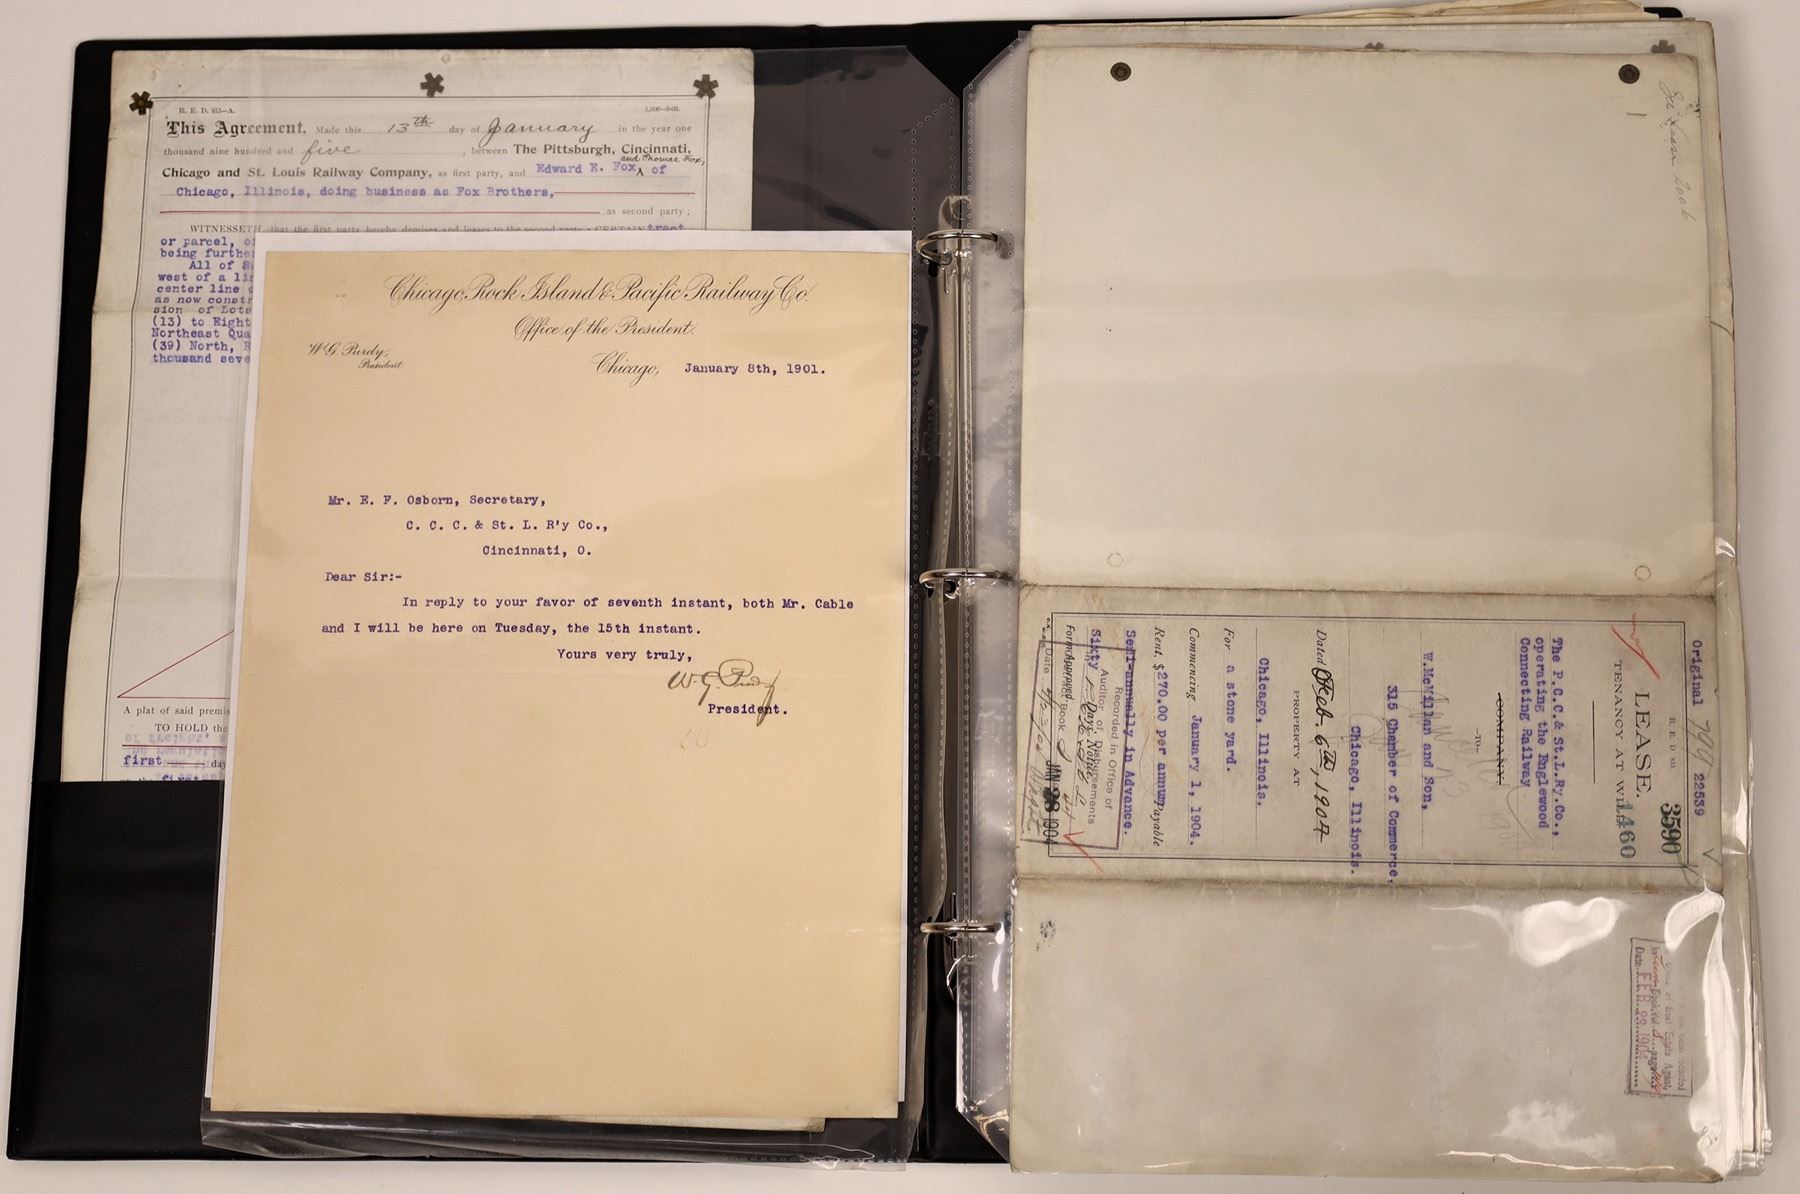 R. E. D. 815—A.
1,000—9-03.
This Agreement, Made this 13th day of January in the year one
thousand nine hundred and five, between The Pittsburgh, Cincinnati,
and Thomas Fox,
Chicago and St. Louis Railway Company, as first party, and Edward E. Fox ^ of
Chicago, Illinois, doing business as Fox Brothers,
as second party;
WITNESSETH, that the first party hereby demises and leases to the second party a CERTAIN tract
or parcel, of
being furthe
All of S
west of a li
center line
as now constr
sion of Lots
(13) to Eight
Northeast Qua
(39) North, R
thousand seve
A plat of said premis
TO HOLD the
first day
first
Chicago, Rock Island & Pacific Railway Co.
Office of the President.
W. G. Purdy,
President
Chicago, January 8th, 1901.
Mr. E. F. Osborn, Secretary,
C. C. C. & St. L. R'y Co.,
Cincinnati, O.
Dear Sir:-
In reply to your favor of seventh instant, both Mr. Cable
and I will be here on Tuesday, the 15th instant.
Yours very truly,
W. G. Purdy
President.
Original 799 22539
R. E. D 815
3590
LEASE.
TENANCY AT WILL
1460
The P.C.C.& St.L.Ry.Co.,
operating the Englewood
Connecting Railway
COMPANY
—TO—
W.McMillan and Son,
315 Chamber of Commerce,
Chicago, Illinois.
Dated Feb. 6th, 1904
PROPERTY AT
Chicago, Illinois.
For a stone yard.
Commencing January 1, 1904.
Rent, $270.00 per annum Payable
Semi-annually in Advance.
Sixty Days Notice.
Form Approved.
Recorded in Office of
Auditor of Disbursements
Book
Date
JAN 28 1904
Real Estate Agent,
Book Vol. page
Date FEB 23 1904